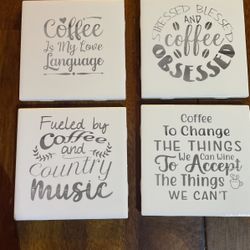 Coffee
Is My Love
Language
STRESSED BLESSED
AND
coffee
OBSESSED
Fueled by
Coffee
and
country
music
Coffee
To Change
THE THINGS
We Can Wine
To Accept
The Things
WE CAN'T